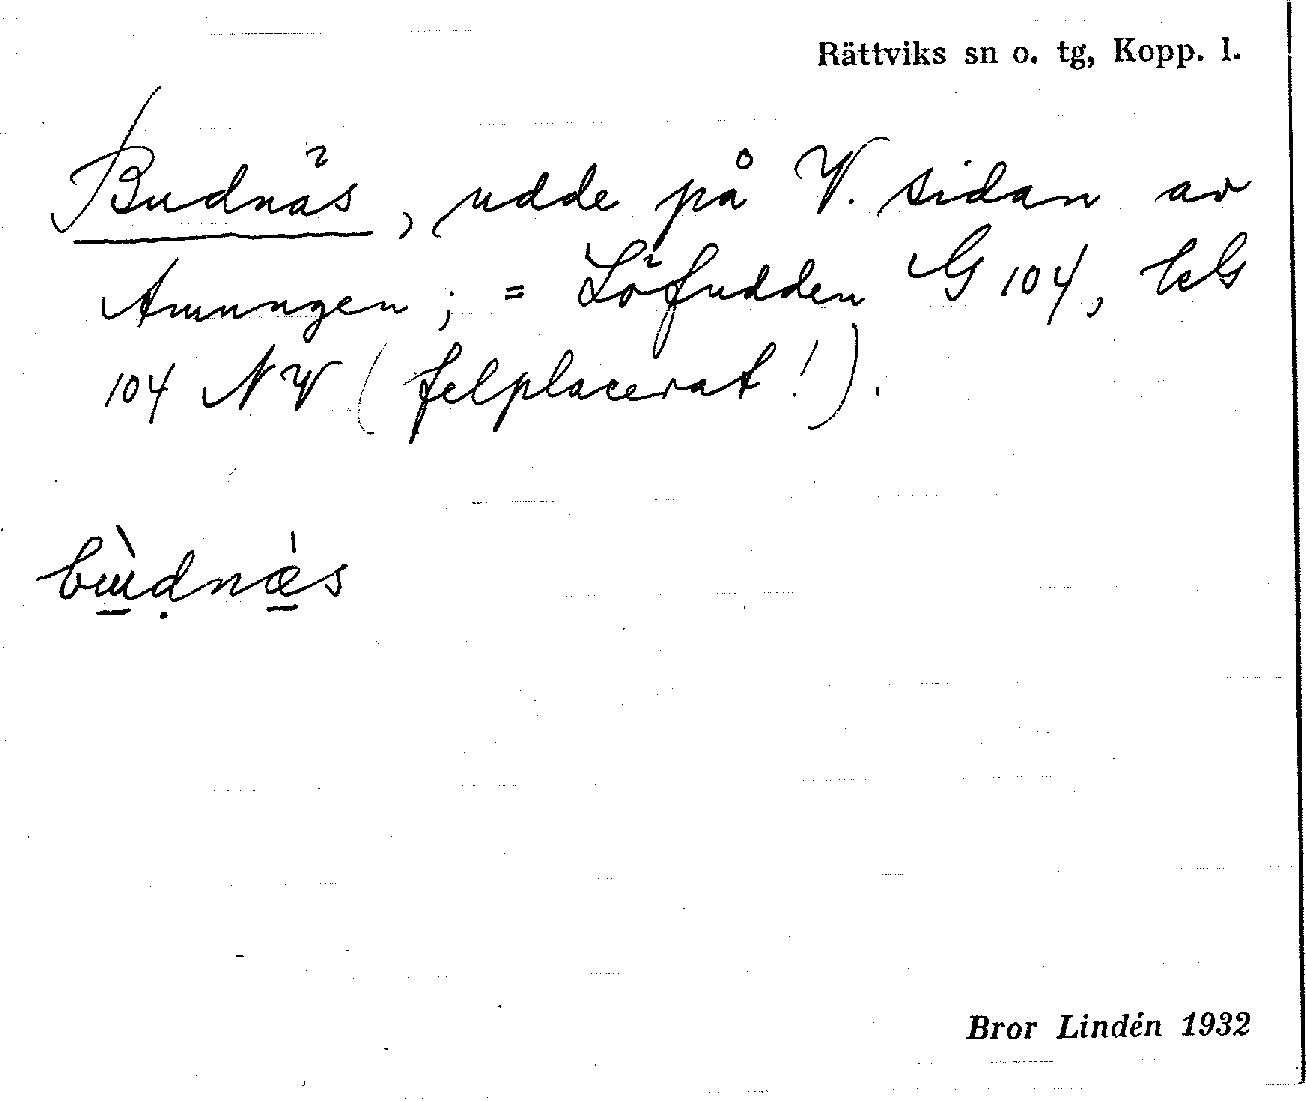 Rättviks sn o. tg, Kopp. l.
Budnäs, udde på V. sidan av
Amungen; = Löfudden G 104, kG
104 NV (felplacerat!).
Bror Lindén 1932